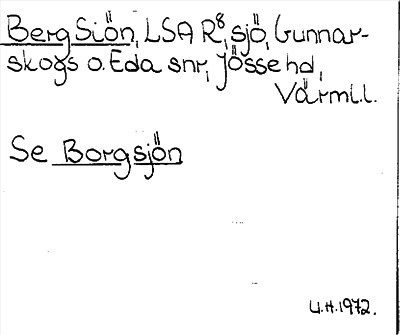 Berg Siön, LSA R8, sjö, Gunnar-
skogs o. Eda snr, Jösse hd,
Värml.l.
Se Borgsjön
U.H.1972.